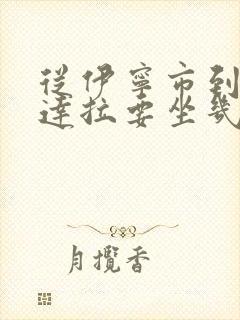 從伊寧市到
達拉要坐幾
月攬香